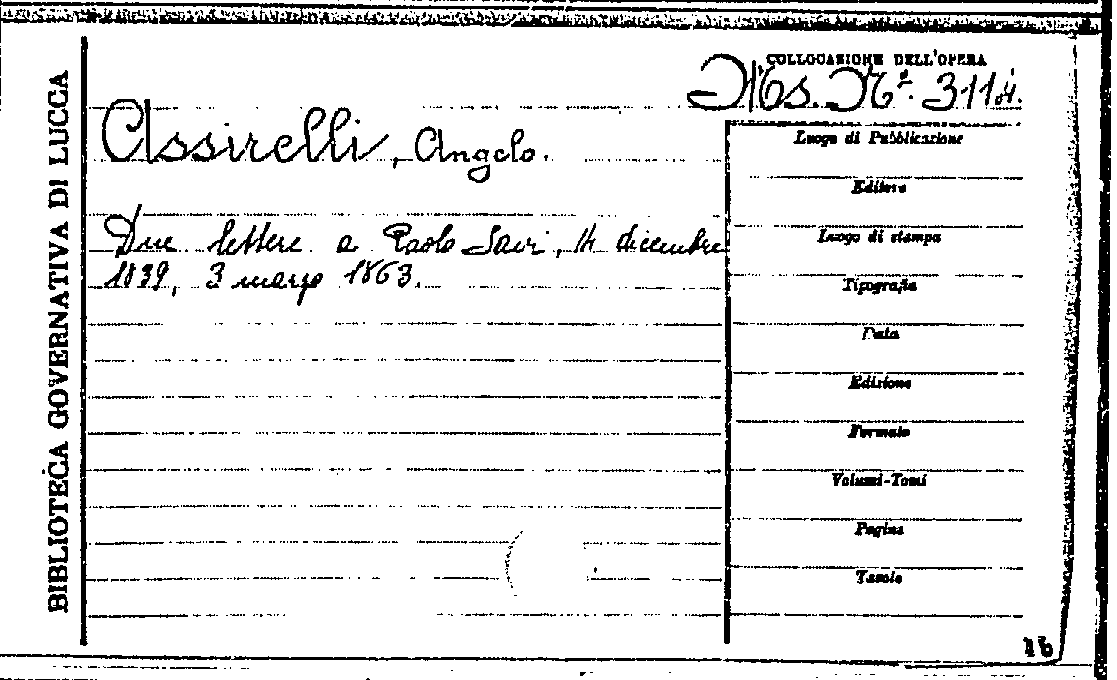 BIBLIOTECA GOVERNATIVA DI LUCCA
COLLOCAZIONE DELL'OPERA
Ms. N.º 3114.
Assirelli, Angelo.
Due lettere a Paolo Savi, 14 dicembre
1839, 3 marzo 1863.
Luogo di Pubblicazione
Editore
Luogo di stampa
Tipografia
Data
Edizione
Formato
Volumi-Tomi
Pagine
Tavole
16